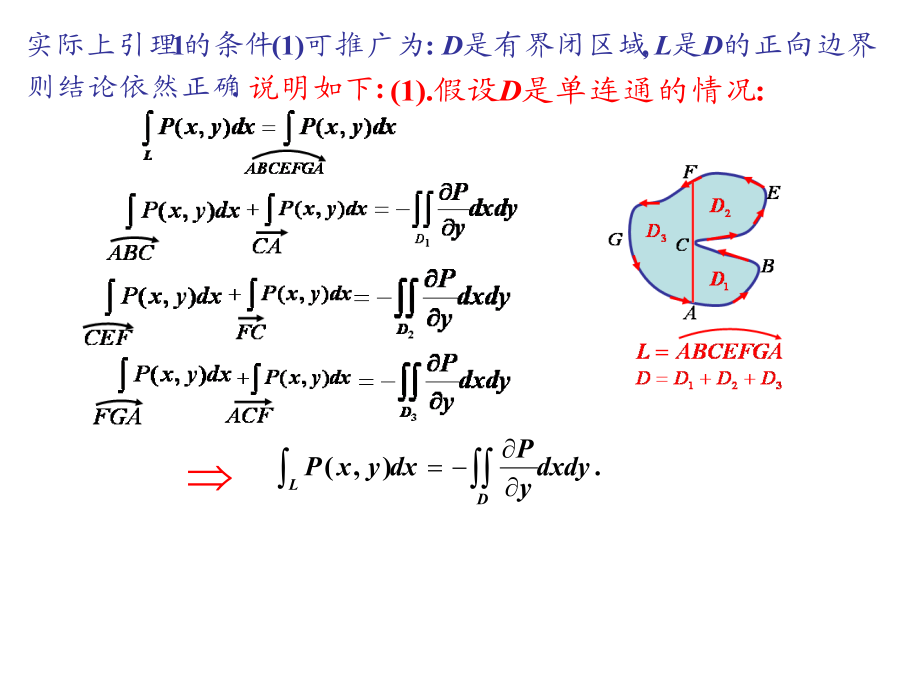 实际上引理1的条件(1)可推广为: D是有界闭区域, L是D的正向边界
则结论依然正确. 说明如下: (1).假设D是单连通的情况:
∫_L P(x, y)dx = ∫_{ABCEFGA} P(x, y)dx
∫_{ABC} P(x, y)dx + ∫_{CA} P(x, y)dx = −∬_{D_1} ∂P/∂y dxdy
∫_{CEF} P(x, y)dx + ∫_{FC} P(x, y)dx = −∬_{D_2} ∂P/∂y dxdy
∫_{FGA} P(x, y)dx + ∫_{ACF} P(x, y)dx = −∬_{D_3} ∂P/∂y dxdy
⇒ ∫_L P(x, y)dx = −∬_D ∂P/∂y dxdy .
F
E
D_2
D_3
G
C
B
D_1
A
L = ABCEFGA
D = D_1 + D_2 + D_3